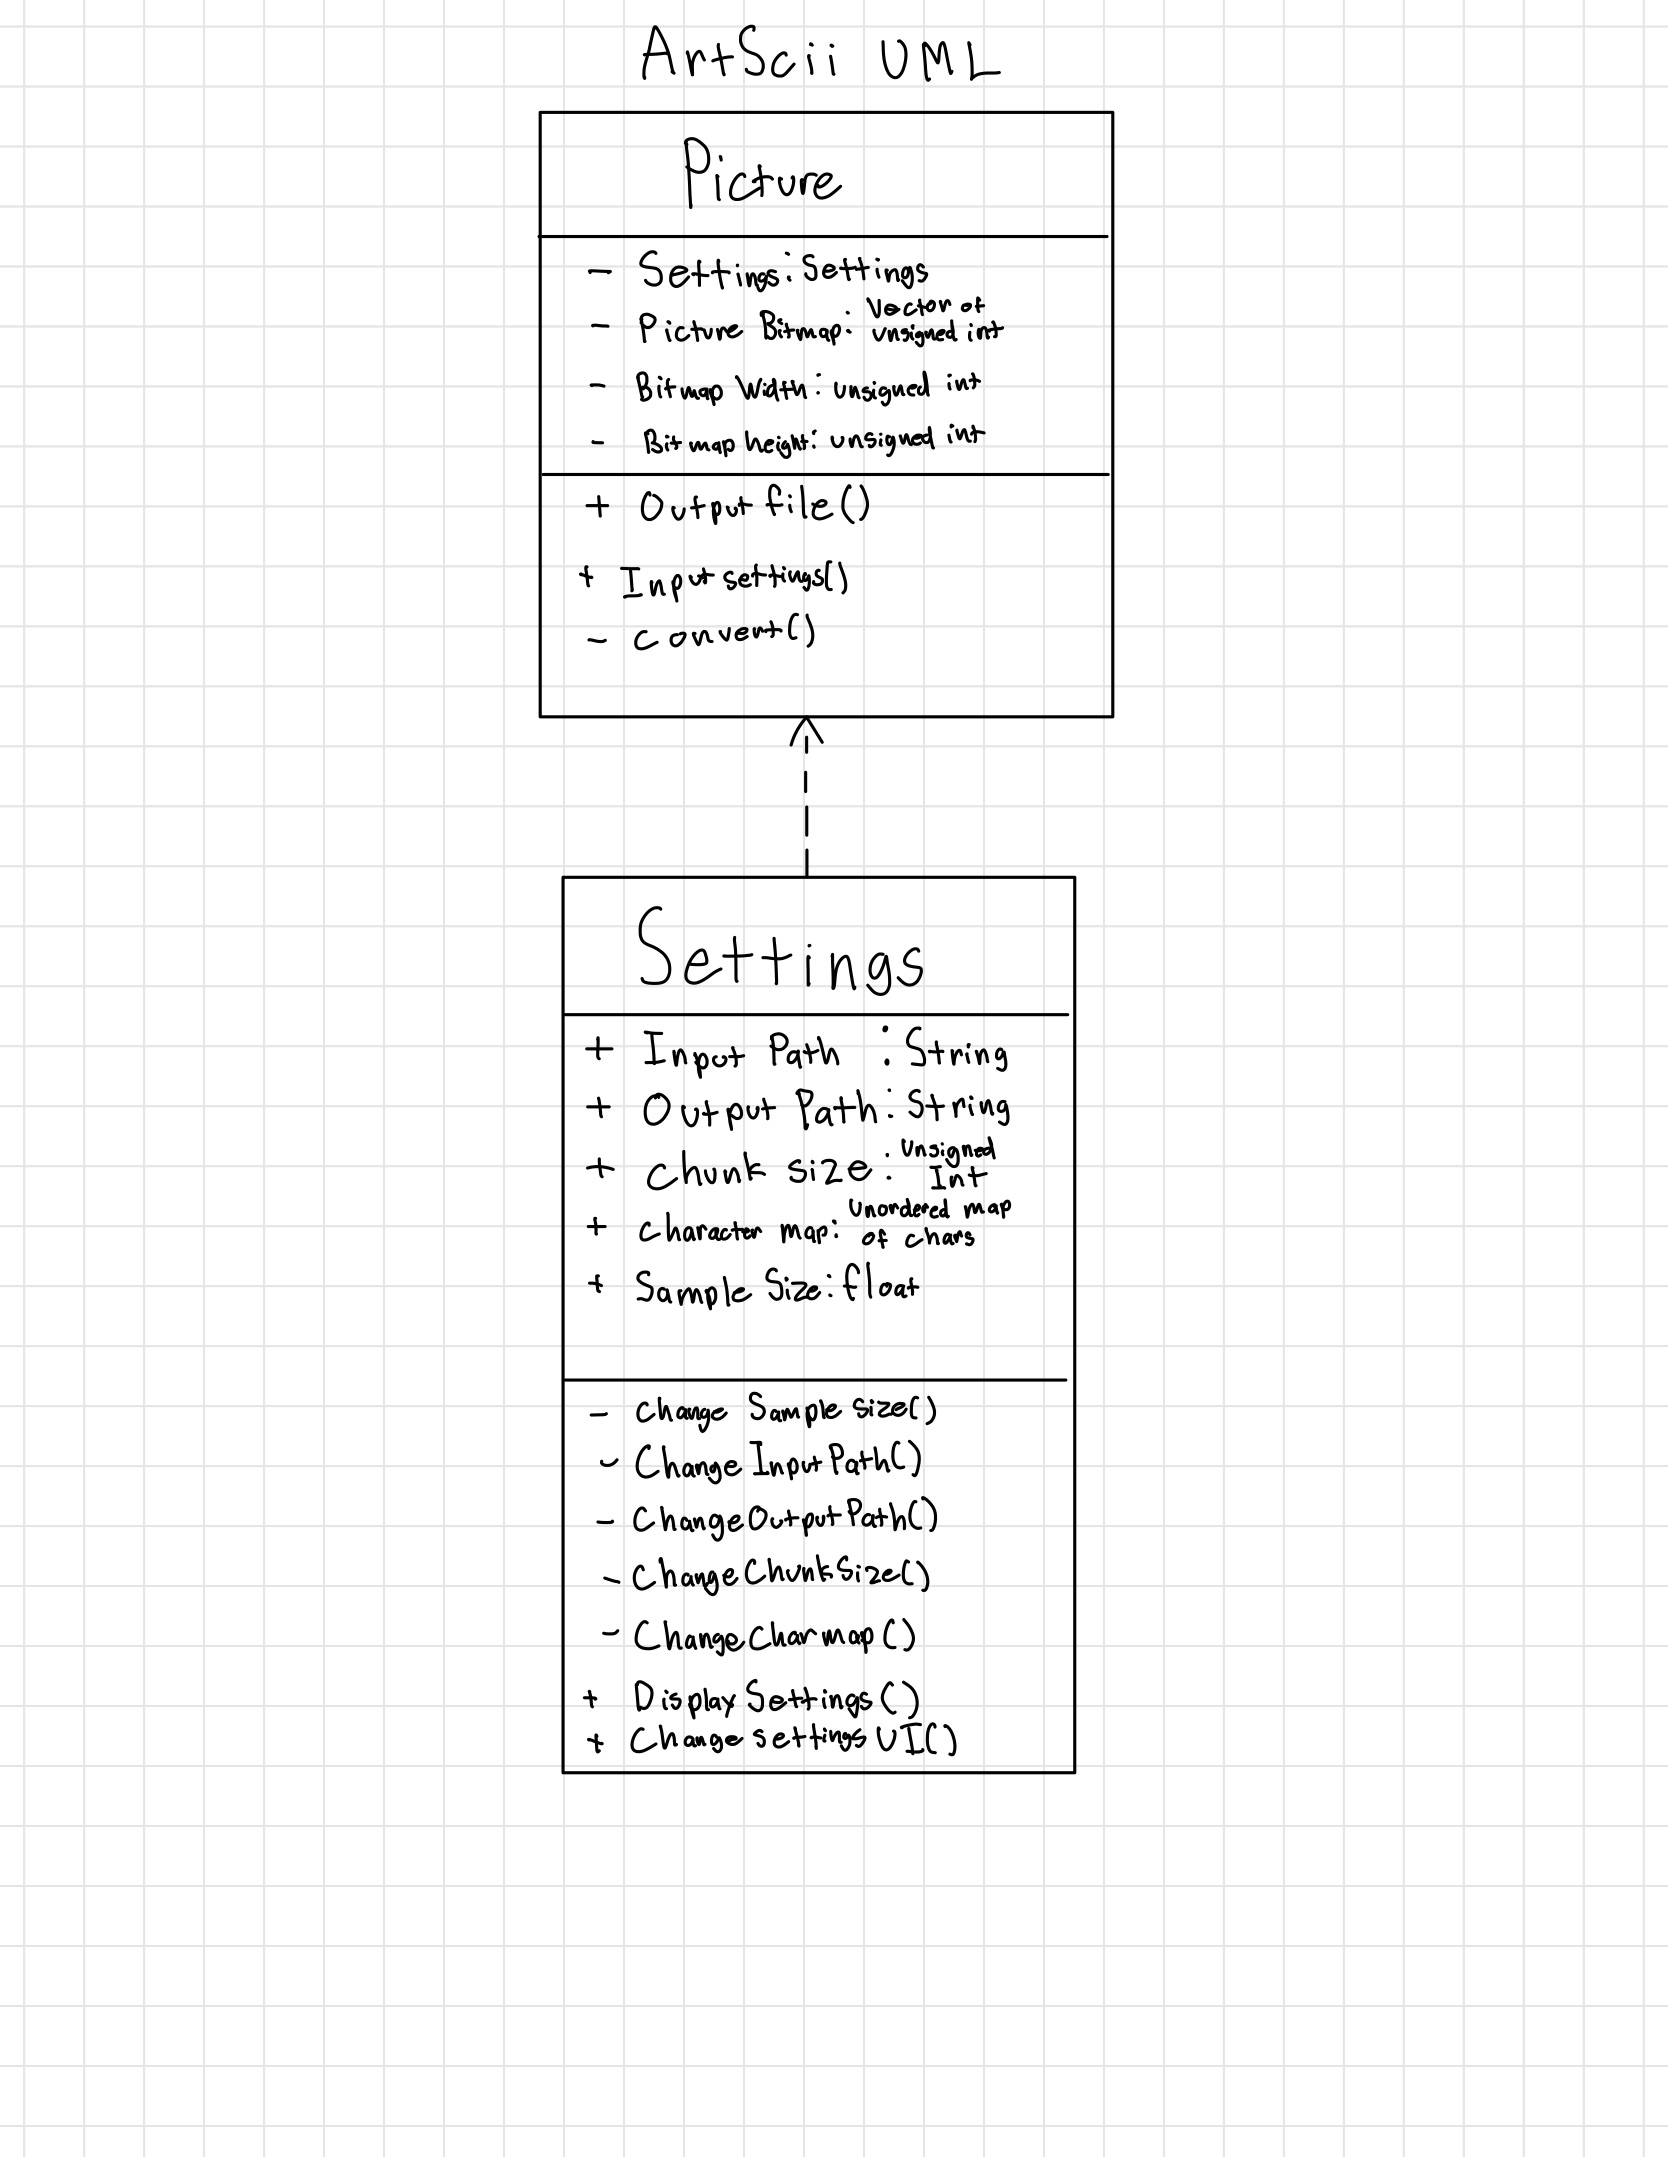 ArtScii UML
Picture
- Settings: Settings
- Picture Bitmap: Vector of
unsigned int
- Bitmap Width: unsigned int
- Bitmap height: unsigned int
+ Output file()
+ Input settings()
- convert()
Settings
+ Input Path : String
+ Output Path: String
+ chunk size: unsigned
Int
+ character map: unordered map
of chars
+ Sample Size: float
- change Sample size()
- Change Input Path()
- Change Output Path()
- Change Chunk Size()
- Change charmap()
+ Display Settings()
+ Change settings UI()